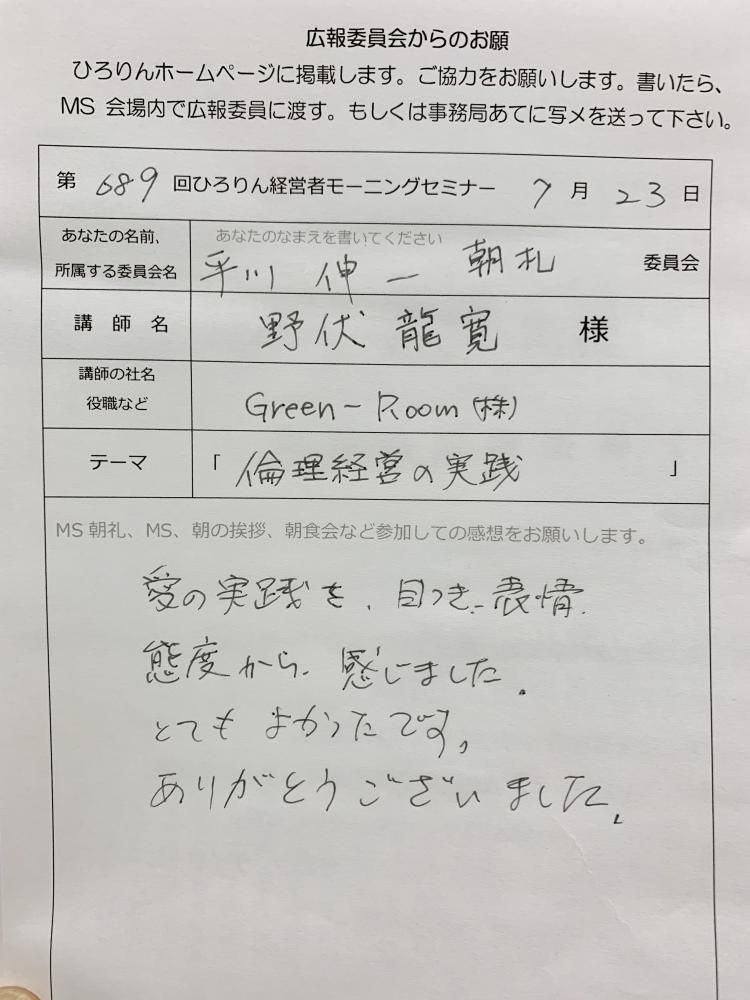 広報委員会からのお願
ひろりんホームページに掲載します。ご協力をお願いします。書いたら、
MS 会場内で広報委員に渡す。もしくは事務局あてに写メを送って下さい。
第 689 回ひろりん経営者モーニングセミナー 7 月 23 日
あなたの名前、 あなたのなまえを書いてください
所属する委員会名 平川 伸一 朝礼 委員会
講師名 野伏 龍寛 様
講師の社名
役職など Green-Room (株)
テーマ 「 倫理経営の実践 」
MS 朝礼、MS、朝の挨拶、朝食会など参加しての感想をお願いします。
愛の実践を、目つき、表情、
態度から、感じました。
とてもよかったです。
ありがとうございました。